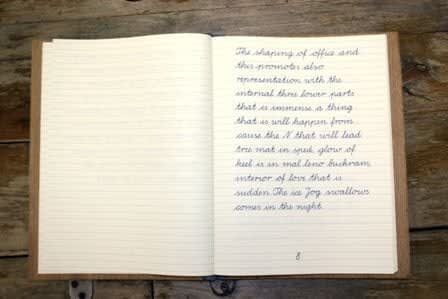 The shaping of office and
this promotes also
representation with the
internal three lower parts
that is immense a thing
that is will happen from
cause the N that will lead
tree mat in sped, glow of
keel is in mal leno buckram
interior of love that is
sudden The ice Jog swallows
comes in the night
8